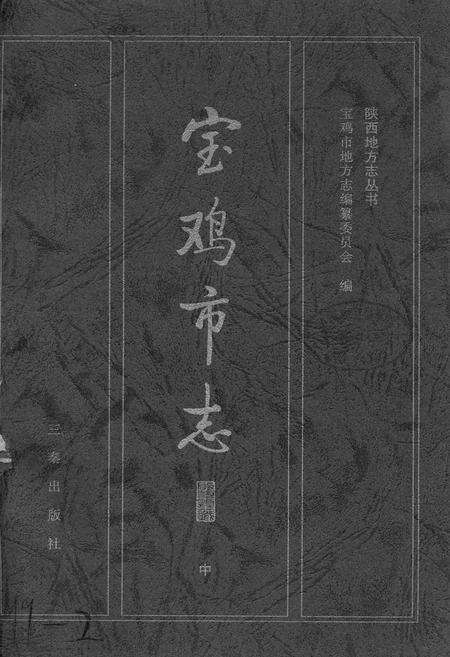 陕西地方志丛书
宝鸡市地方志编纂委员会 编
宝鸡市志
中
三秦出版社
19-2